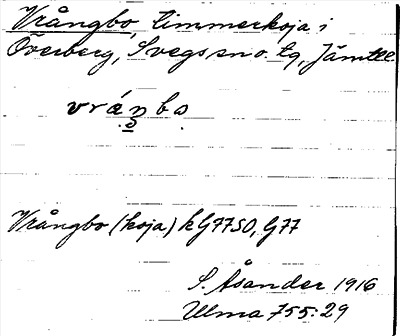 Vrångbo, timmerkoja i
Överberg, Svegs sn o. tg, Jämtl.
vránbo
Vrångbo (koja) kG7750, G77
S. Åsander 1916
Ulma 755:29